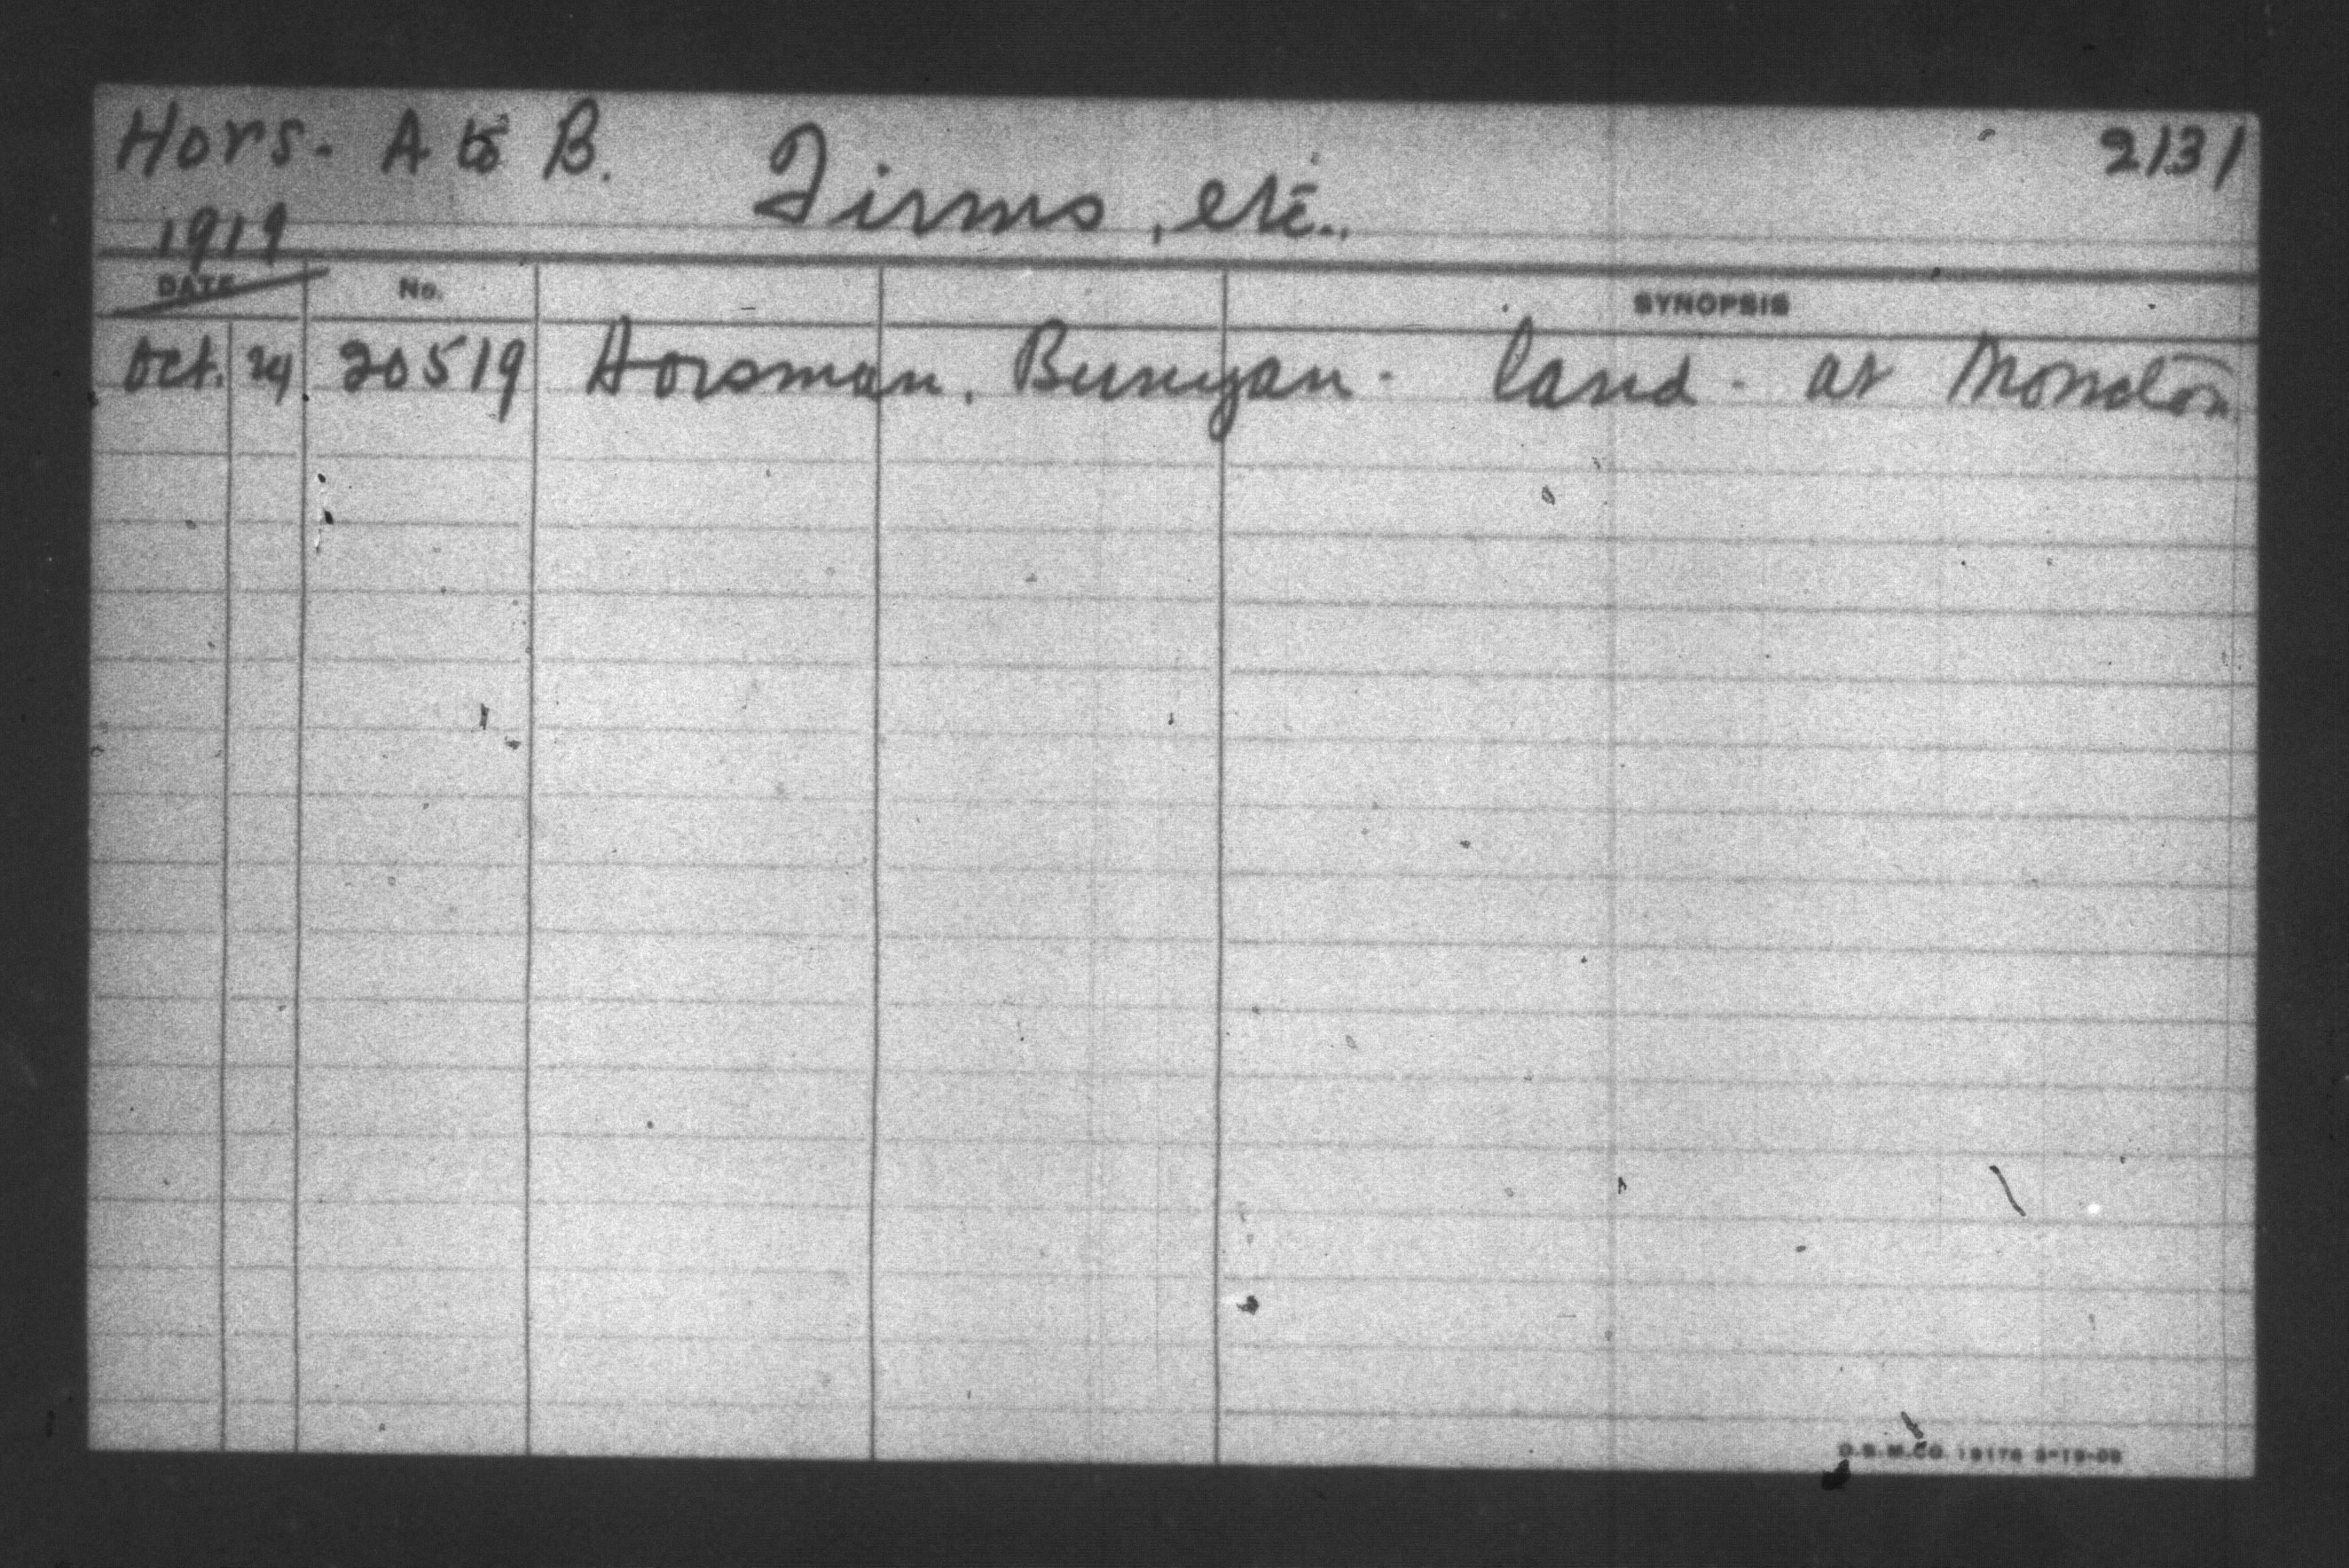 Hors. A to B. Firms, etc. 2131
1919
DATE No. SYNOPSIS
Oct. 24 20519 Horsman, Bunyan. land - at Moncton.
O.S.M.CO. 19176 3-19-09